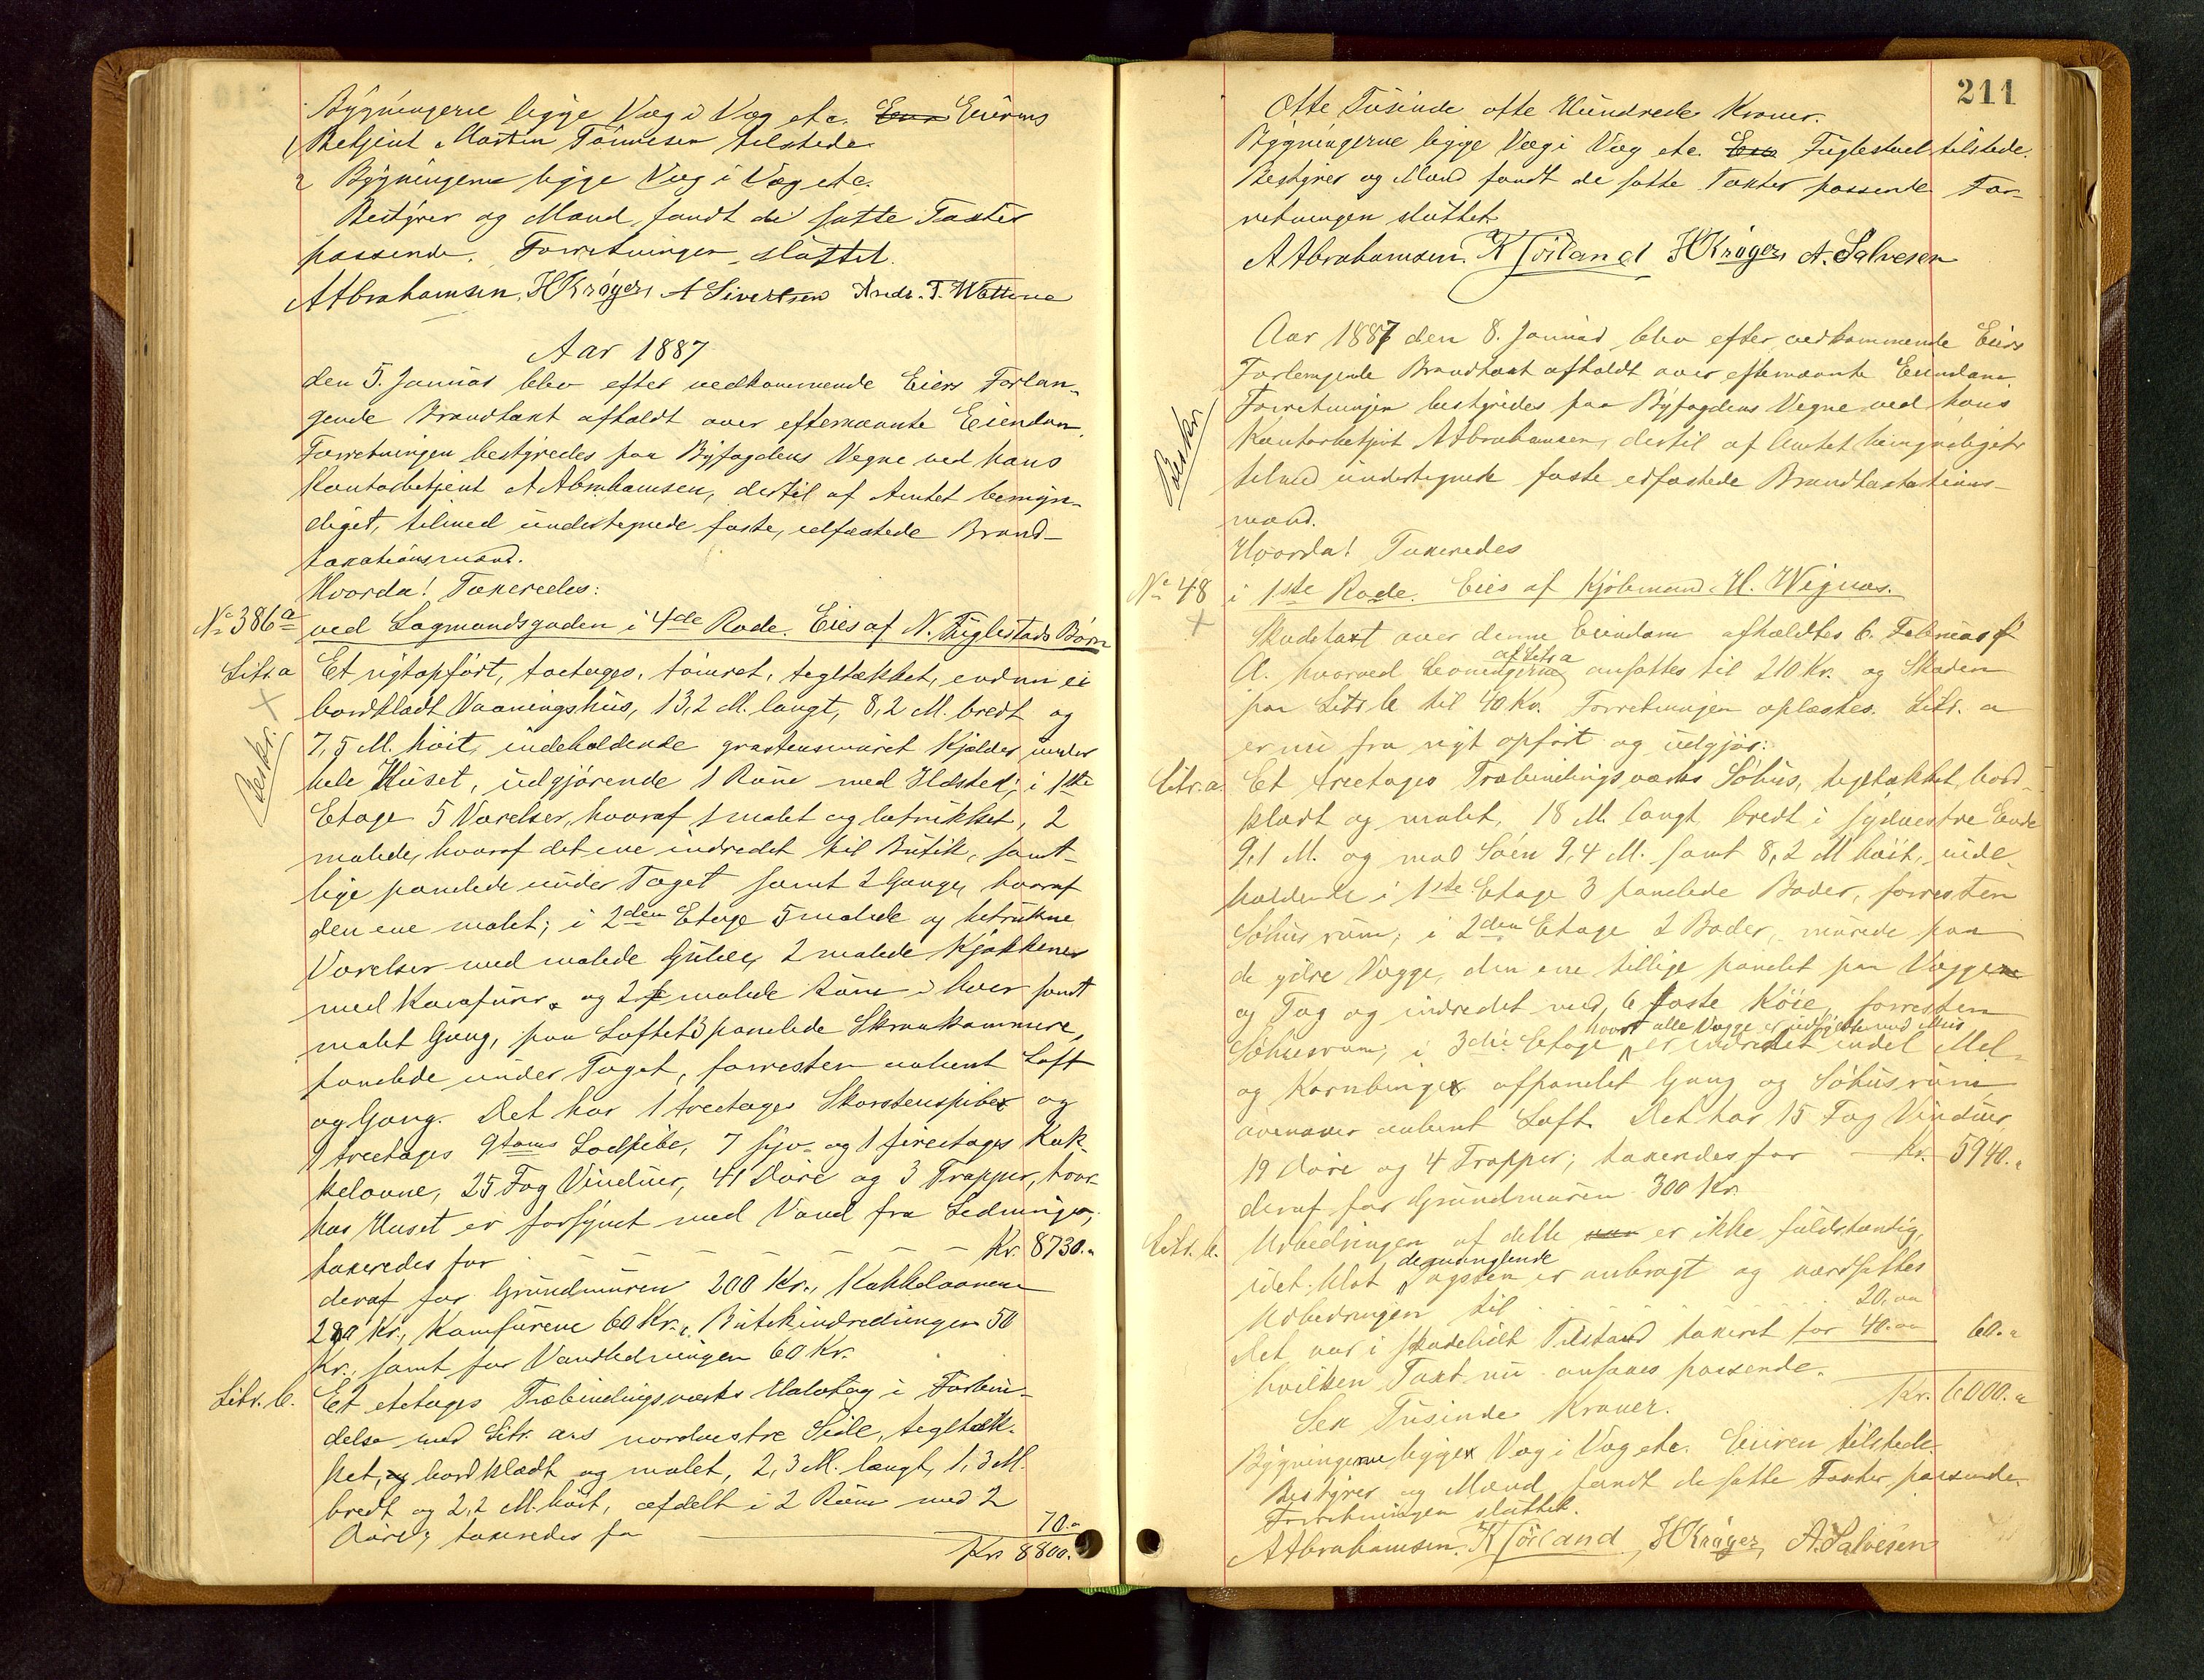 Bygningerne ligge Væg i Væg etc. Eierens
1 Betjent Martin Tönnesen tilstede.
2 Bygningerne ligge Væg i Væg etc.
Bestyrer og Mænd fandt de satte Taxter
passende. Forretningen sluttet.
A Abrahamsen, H Krøger, A Sivertsen Andr. T. Wattne
Aar 1887
den 5. Januar blev efter vedkommende Eiers Forlan-
gende Brandtaxt afholdt over eftermævnte Eiendom.
Forretningen bestyredes paa Byfogdens Vegne ved hans
Kontorbetjent A Abrahamsen, dertil af Amtet bemyn-
diget, tilmed undertegnede faste, edfæstede Brand-
taxationsmænd.
Hvorda! Taxeredes:
No 386a ved Lagmandsgaden i 4de Rode. Eies af N. Fuglestads Börn
Litr a Et nytopført, toetages, tømret, tegltækket, endnu ei
bordklædt Vaaningshus, 13,2 M. langt, 8,2 M. bredt og
Beskr. 7,5 M. høit, indeholdende graastensmuret Kjælder under
hele Huset, udgjørende 1 Rum med Ildsted; i 1ste
Etage 5 Værelser, hvoraf 1 malet og betrukket, 2
malede, hvoraf det ene indredet til Butik, samt-
lige panelede under Taget samt 2 Gange, hvoraf
den ene malet; i 2den Etage 5 malede og betrukne
Værelser med malede Gulve, 2 malede Kjøkkener
med Komfurer og 2 malede Rum i hver samt
malet Gang, paa Loftet 3 panelede Skraakammere,
panelede under Taget, forresten aabent Loft
og Gang. Det har 1 treetages Skorstenspibe og
1 treetages 9toms Lodpibe, 7 sjo- og 1 fireetages Kak-
kelovne, 25 Fag Vinduer, 41 Döre og 3 Trapper, hvor-
hos Huset er forsynet med Vand fra Ledningen,
taxeredes for Kr. 8730.„
deraf for Grundmuren 200 Kr., Kakkelovnene
280 Kr., Komfurene 60 Kr., Butikindredningen 50
Kr., samt for Vandledningen 60 Kr.
Litr. b. Et etetages Træbindingsværks Halvtag i Forbin-
delse med Litr. a's nordvestre Side, tegltæk-
ket, bordklædt og malet, 2,3 M. langt, 1,3 M.
bredt og 2,2 M. høit, afdelt i 2 Rum med 2
Döre; taxeredes for 70.„
Kr. 8800.
211
Otte Tusinde otte Hundrede Kroner.
Bygningerne ligge Væg i Væg etc. Fuglestad tilstede.
Bestyrer og Mænd fandt de satte Taxter passende. For-
retningen sluttet.
A Abrahamsen. K Sörland H Krøger, A. Salvesen
Aar 1887 den 8. Januar blev efter vedkommende Eiers
Forlangende Brandtaxt afholdt over eftermævnte Eiendom.
Forretningen bestyredes paa Byfogdens Vegne ved hans
Beskr. Kontorbetjent A Abrahamsen, dertil af Amtet bemyndiget,
tilmed undertegnede faste edfæstede Brandtaxations-
mænd.
Hvorda! Taxeredes
No 48 i 1ste Rode. Eies af Kjøbmand H. Wignæs.
Skadetaxt over denne Eiendom afholdtes 6. Februar f.
A. hvorved Levningerne af Litr a ansattes til 210 Kr. og Skaden
paa Litr b til 40 Kr. Forretningen oplæstes. Litr. a
er nu fra nyt opført og udgjør:
Litr. a. Et treetages Træbindingsværks Søhus, tegltækket, bord-
klædt og malet, 18 M. langt bredt i sydvestre Ende
9,1 M. og mod Søen 9,4 M. samt 8,2 M høit, inde-
holdende i 1ste Etage 3 panelede Boder, forresten
Søhusrum; i 2den Etage 2 Boder, murede paa
de ydre Vægge, den ene tillige panelet paa Væggene
og Tag og indredet med 6 faste Köie, forresten
Søhusrum; i 3die Etage, hvor alle Vægge er udfyldte med Mur, er indredet endel Mel-
og Kornbinger afpanelet Gang og Søhusrum
ovenover aabent Loft. Det har 15 Fag Vinduer,
19 Döre og 4 Trapper; taxeredes for Kr. 5940.„
deraf for Grundmuren 300 Kr.
Litr. b. Udbedringen af dette er ikke fuldstændig,
idet blot de manglende Tagsten er anbragt og værdsattes
Udbedringen til 20.„
Det var i skadelidt Tilstand taxeret for 40.„ 60.„
hvilken Taxt nu ansaaes passende.
Kr. 6000.„
Sex Tusinde Kroner.
Bygningerne ligge Væg i Væg etc. Eieren tilstede.
Bestyrer og Mænd fandt de satte Taxter passende.
Forretningen sluttet.
A Abrahamsen. K Sörland, H Krøger, A. Salvesen